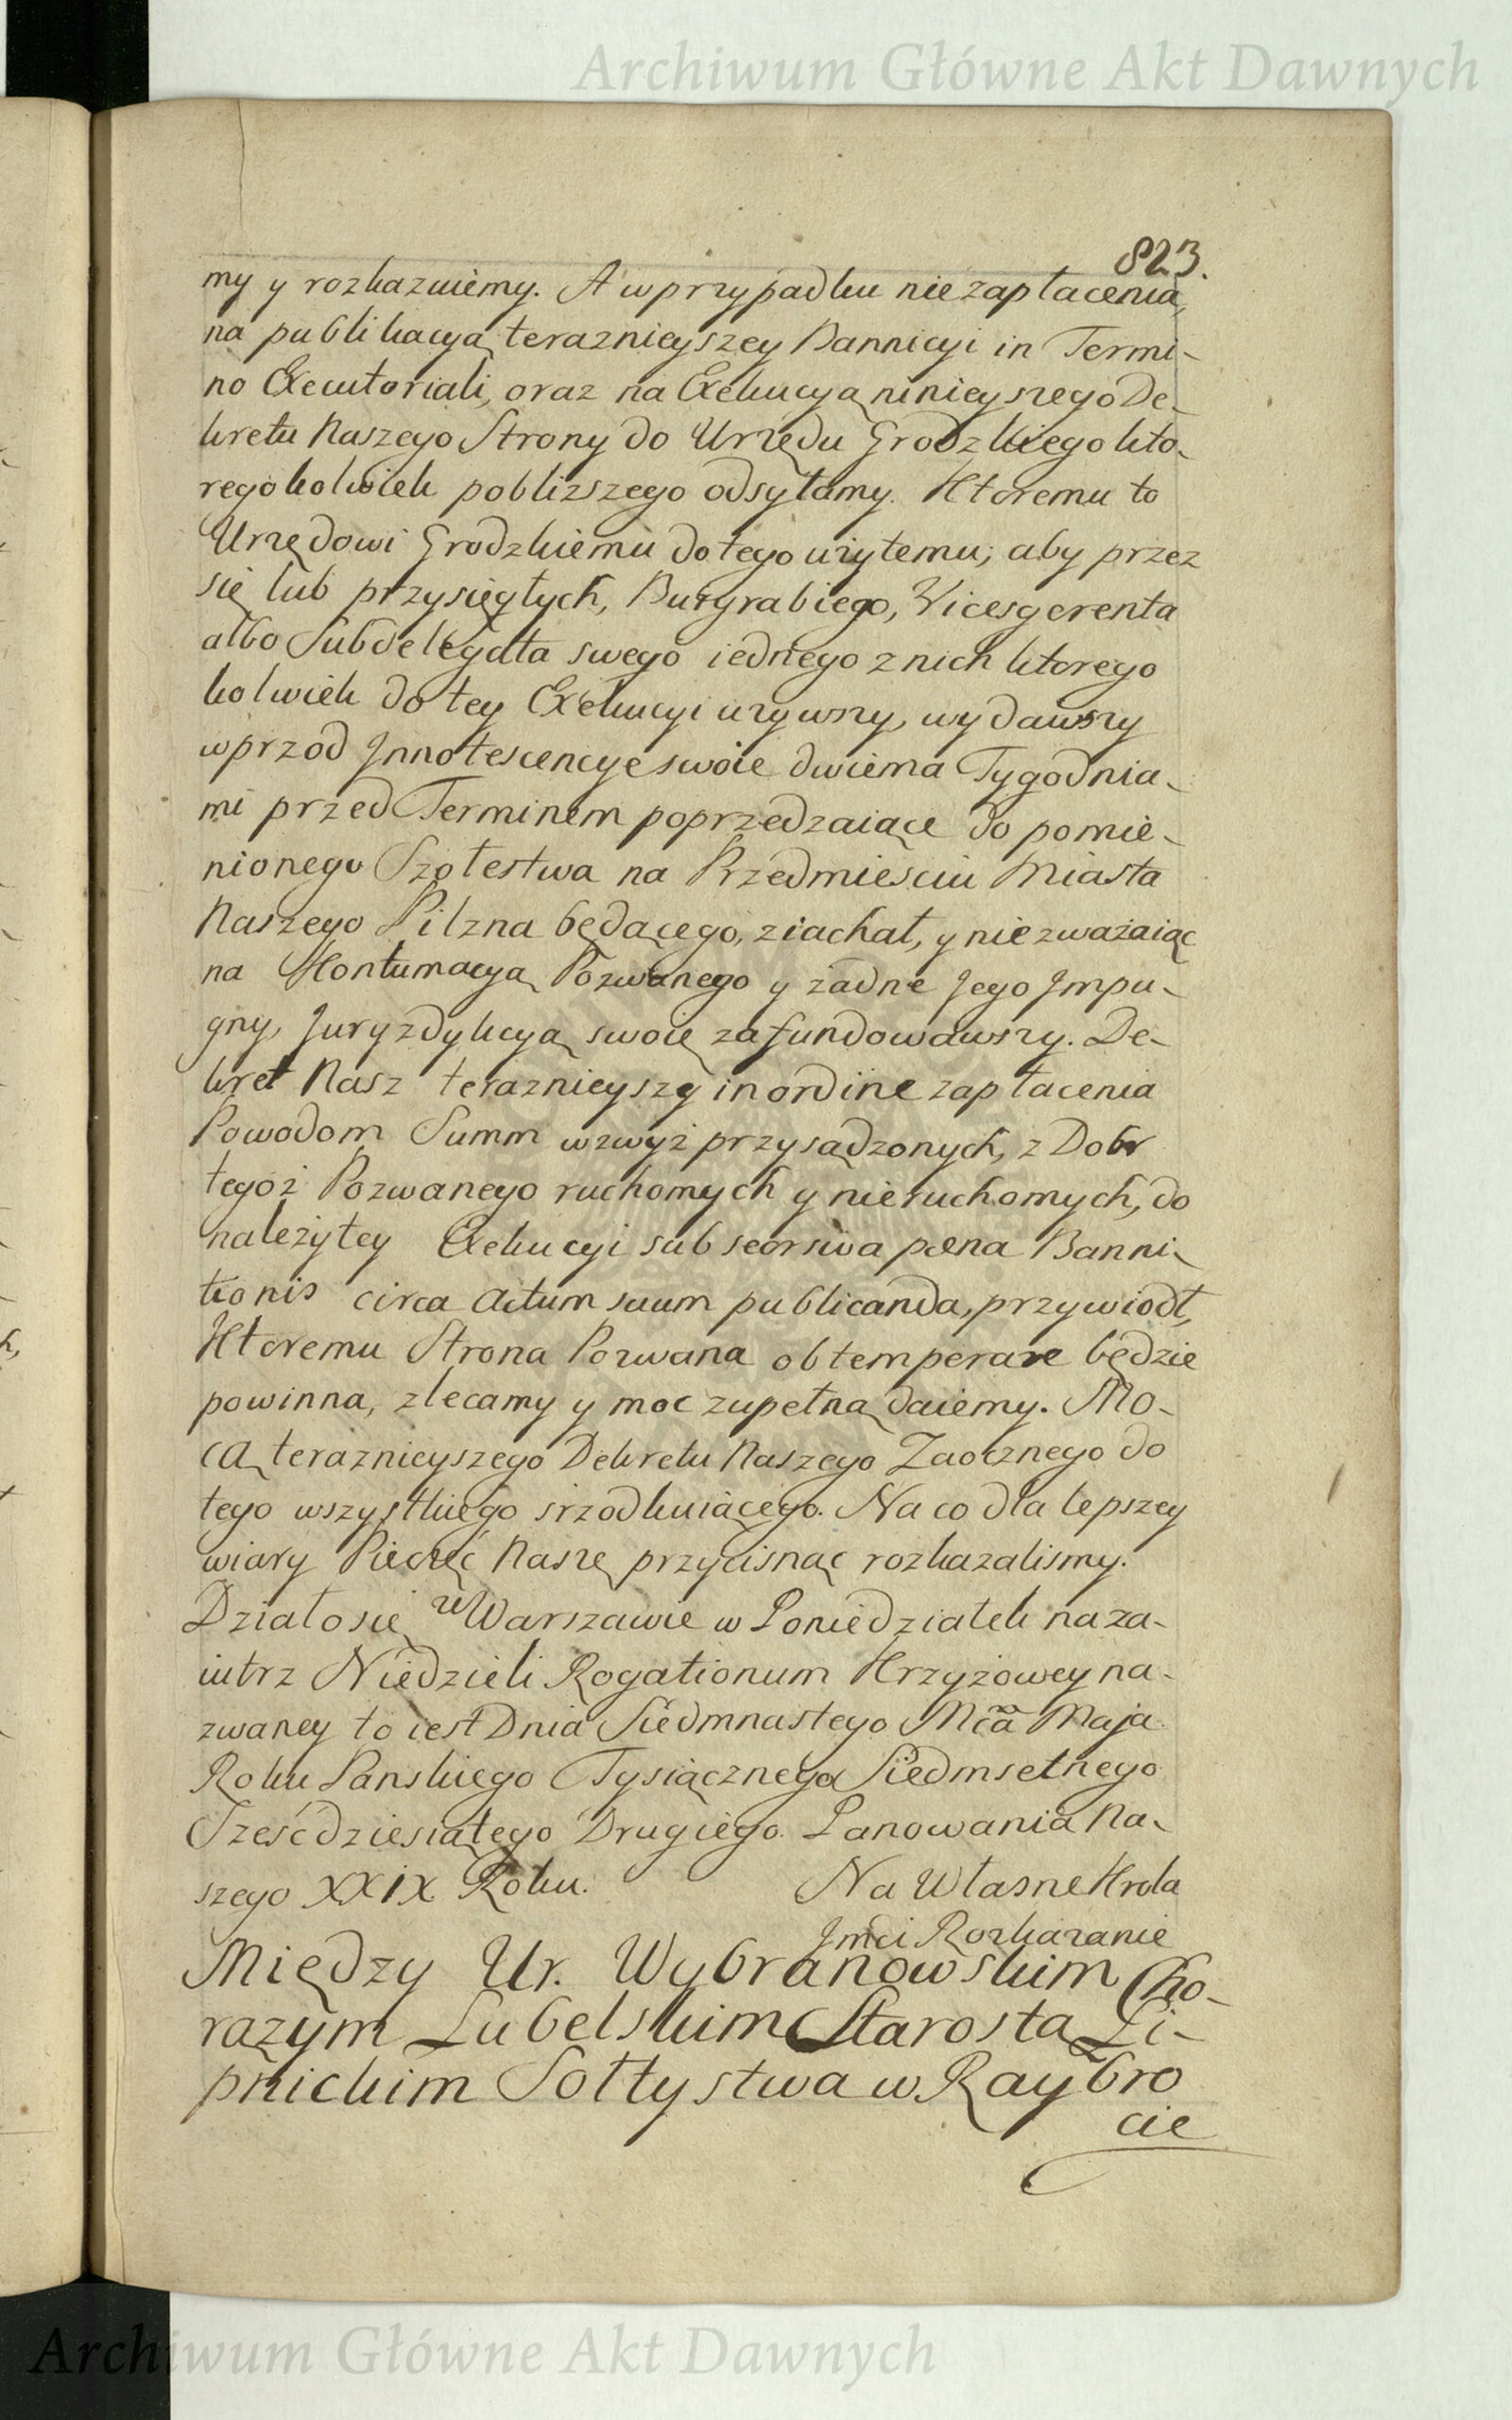 Archiwum Główne Akt Dawnych
823.
my y rozkazuiemy. A w przypadku nie zapłacenia,
na publikacyą teraznieyszey Bannicyi in Termi-
no Executoriali, oraz na Exekucyą ninieyszego De-
kretu Naszego Strony do Urzędu Grodzkiego kto-
regokolwiek pobliższego odsyłamy. Ktoremu to
Urzędowi Grodzkiemu do tego użytemu; aby przez
się lub przysięgłych, Burgrabiego, Vicesgerenta
albo Subdelegata swego iednego z nich ktorego
kolwiek do tey Exekucyi uzywszy, wydawszy
wprzod Innotescencye swoie dwiema Tygodnia-
mi przed Terminem poprzedzaiące do pomie-
nionego Szołestwa na Przedmiesciu Miasta
Naszego Pilzna będącego, ziachał, y nie zważaiąc
na Kontumacyą Pozwanego y żadne Jego Impu-
gny, Juryzdykcyą swoię zafundowawszy. De-
kret Nasz teraznieyszy in ordine zapłacenia
Powodom Summ wzwyż przysądzonych, z Dobr
tegoż Pozwanego ruchomych y nieruchomych, do
należytey Exekucyi sub seorsiva pæna Banni-
tionis circa Actum suum publicanda, przywiodł,
Ktoremu Strona Pozwana obtemperare będzie
powinna, zlecamy y moc zupełną daiemy. Mo-
cą teraznieyszego Dekretu Naszego Zaocznego do
tego wszystkiego srzodkuiącego. Na co dla lepszey
wiary Pieczęć Naszę przycisnąc rozkazalismy.
Działo się w Warszawie w Poniedziałek naza-
iutrz Niedzieli Rogationum Krzyżowey na-
zwaney to iest Dnia Siedmnastego Mca Maja
Roku Panskiego Tysiącznego Siedmsetnego
Sześćdziesiątego Drugiego. Panowania Na-
szego XXIX Roku. Na Własne Krola
Jmci Rozkazanie
Między Ur. Wybranowskim Cho-
rązym Lubelskim Starostą Li-
pnickim Sołtystwa w Raybro
cie
Archiwum Główne Akt Dawnych